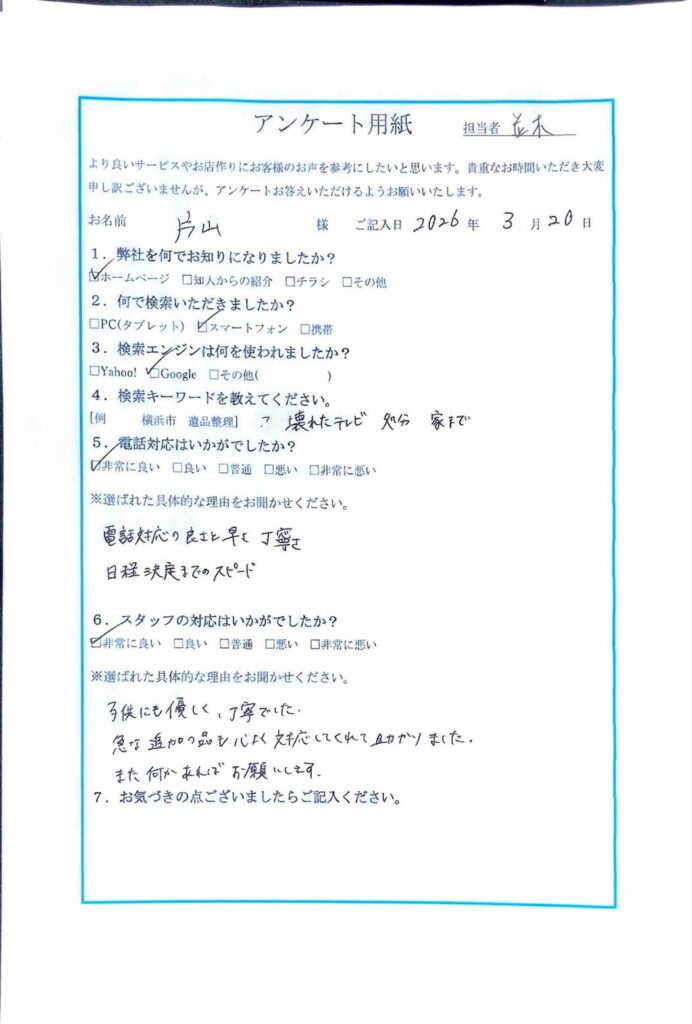 アンケート用紙 担当者 並木
より良いサービスやお店作りにお客様のお声を参考にしたいと思います。貴重なお時間いただき大変
申し訳ございませんが、アンケートお答えいただけるようお願いいたします。
お名前 片山 様 ご記入日 2026 年 3 月 20 日
1．弊社を何でお知りになりましたか？
☑ホームページ □知人からの紹介 □チラシ □その他
2．何で検索いただきましたか？
□PC(タブレット) ☑スマートフォン □携帯
3．検索エンジンは何を使われましたか？
□Yahoo! ☑Google □その他( )
4．検索キーワードを教えてください。
[例 横浜市 遺品整理] ? 壊れたテレビ 処分 家まで
5．電話対応はいかがでしたか？
☑非常に良い □良い □普通 □悪い □非常に悪い
※選ばれた具体的な理由をお聞かせください。
電話対応の良さと早さ 丁寧さ
日程決定までのスピード
6．スタッフの対応はいかがでしたか？
☑非常に良い □良い □普通 □悪い □非常に悪い
※選ばれた具体的な理由をお聞かせください。
子供にも優しく、丁寧でした.
急な追加の品も心よく対応してくれて助かりました.
また何かあればお願いします.
7．お気づきの点ございましたらご記入ください。